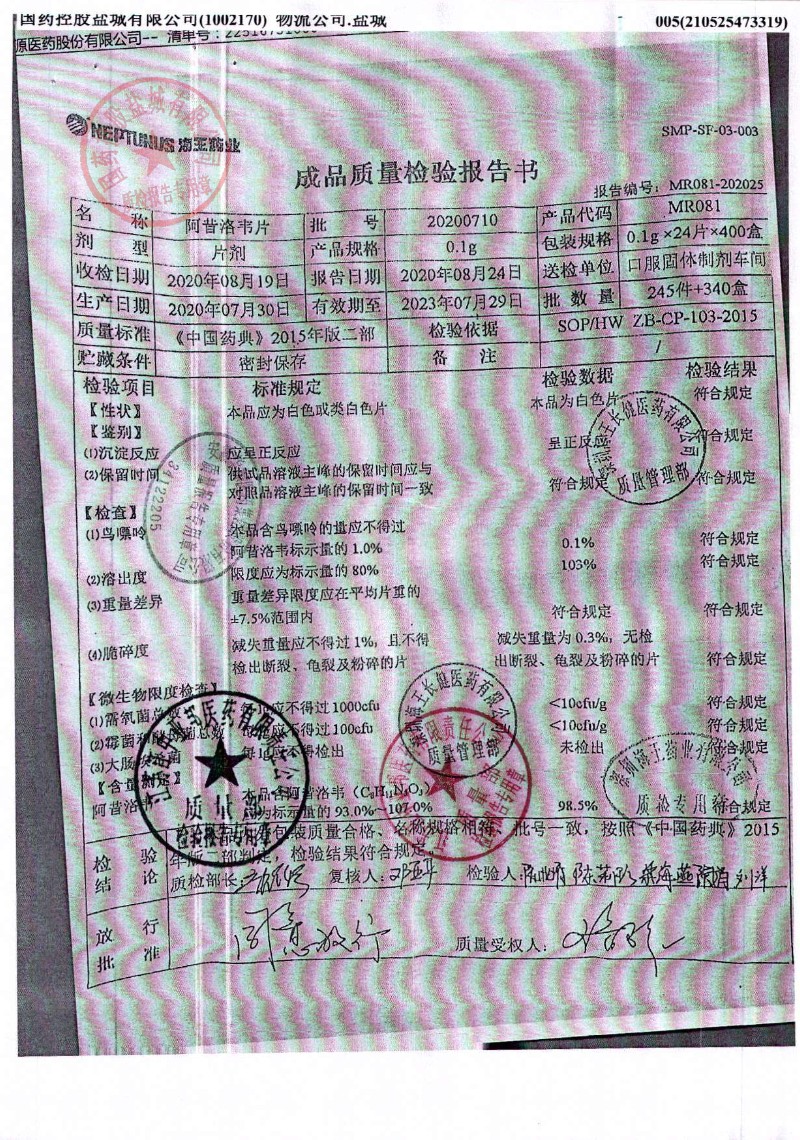 国药控股盐城有限公司(1002170) 物流公司.盐城 005(210525473319)
源医药股份有限公司-- 清单号：
NEPTUNUS 海王药业
SMP-SF-03-003
成品质量检验报告书
报告编号：MR081-202025
名 称 阿昔洛韦片 批 号 20200710 产品代码 MR081
剂 型 片剂 产品规格 0.1g 包装规格 0.1g×24片×400盒
收检日期 2020年08月19日 报告日期 2020年08月24日 送检单位 口服固体制剂车间
生产日期 2020年07月30日 有效期至 2023年07月29日 批 数 量 245件+340盒
质量标准 《中国药典》2015年版二部 检验依据 SOP/HW ZB-CP-103-2015
贮藏条件 密封保存 备 注 /
检验项目 标准规定 检验数据 检验结果
【性状】 本品应为白色或类白色片 本品为白色片 符合规定
【鉴别】
(1)沉淀反应 应呈正反应 呈正反应 符合规定
(2)保留时间 供试品溶液主峰的保留时间应与
对照品溶液主峰的保留时间一致 符合规定 符合规定
【检查】
(1)鸟嘌呤 本品含鸟嘌呤的量应不得过
阿昔洛韦标示量的 1.0% 0.1% 符合规定
(2)溶出度 限度应为标示量的 80% 103% 符合规定
(3)重量差异 重量差异限度应在平均片重的
±7.5%范围内 符合规定 符合规定
(4)脆碎度 减失重量应不得过 1%，且不得 减失重量为 0.3%，无检
检出断裂、龟裂及粉碎的片 出断裂、龟裂及粉碎的片 符合规定
【微生物限度检查】
(1)需氧菌总数 每1g应不得过 1000cfu <10cfu/g 符合规定
(2)霉菌和酵母菌总数 每1g应不得过 100cfu <10cfu/g 符合规定
(3)大肠埃希菌 每1g应不得检出 未检出 符合规定
【含量测定】 本品含阿昔洛韦（C₈H₁₁N₅O₃）
阿昔洛韦 应为标示量的 93.0%～107.0% 98.5% 符合规定
包装质量合格、名称规格相符、批号一致，按照《中国药典》2015
检 验 年版二部判定，检验结果符合规定
结 论 质检部长： 复核人： 检验人：
放 行 同意放行
批 准 质量受权人：
质检报告专用章
深圳海王长健医药有限公司
质量管理部
34122205
深圳海王长健医药有限公司
质量管理部
质量部
检验报告专用章
深圳海王药业有限公司
质检专用章